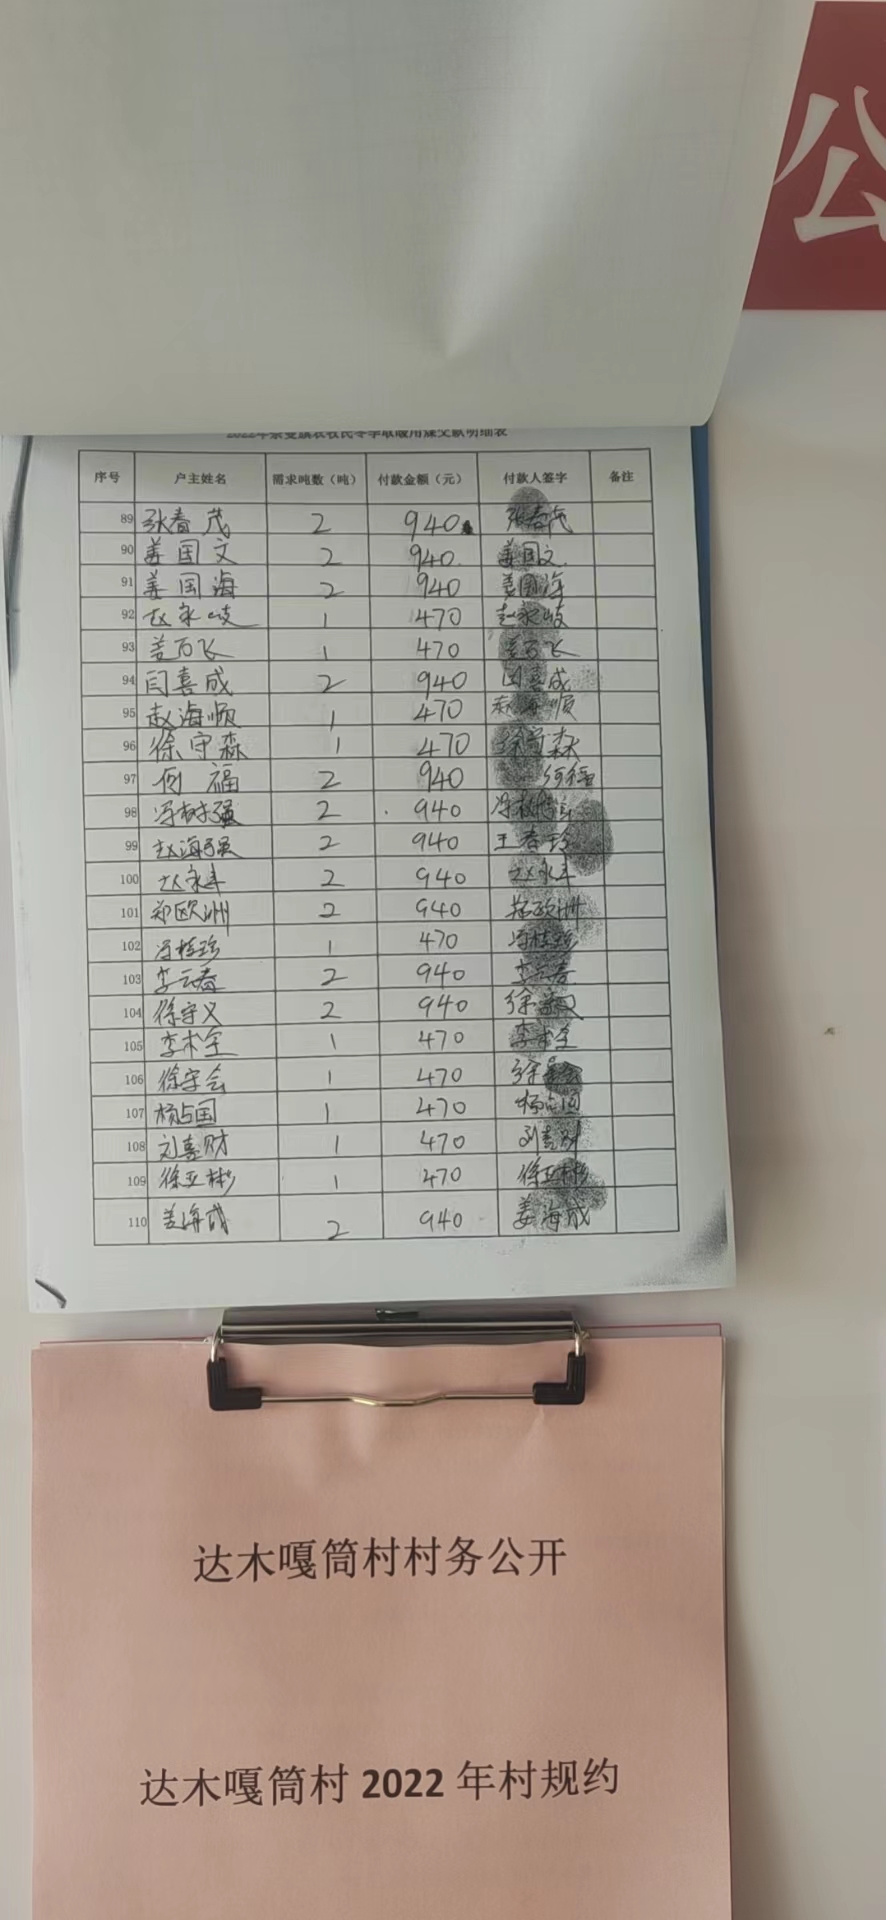 公
2022年奈曼旗农牧民冬季取暖用煤交款明细表
序号 户主姓名 需求吨数（吨） 付款金额（元） 付款人签字 备注
89 张春茂 2 940 张春茂
90 姜国文 2 940 姜国文
91 姜国海 2 940 姜国海
92 赵永岐 1 470 赵永岐
93 姜万飞 1 470 姜万飞
94 闫喜成 2 940 闫喜成
95 赵海顺 1 470 赵海顺
96 徐守森 1 470 徐守森
97 何福 2 940 何福
98 冯树强 2 940 冯树强
99 赵海强 2 940 王春玲
100 赵永丰 2 940 赵永丰
101 郑欧洲 2 940 郑欧洲
102 冯桂珍 1 470 冯桂珍
103 李云春 2 940 李云春
104 徐守义 2 940 徐守义
105 李术全 1 470 李术全
106 徐守会 1 470 徐守会
107 杨占国 1 470 杨占国
108 刘喜财 1 470 刘喜财
109 徐亚彬 1 470 徐亚彬
110 姜海成 2 940 姜海成
达木嘎筒村村务公开
达木嘎筒村 2022 年村规约